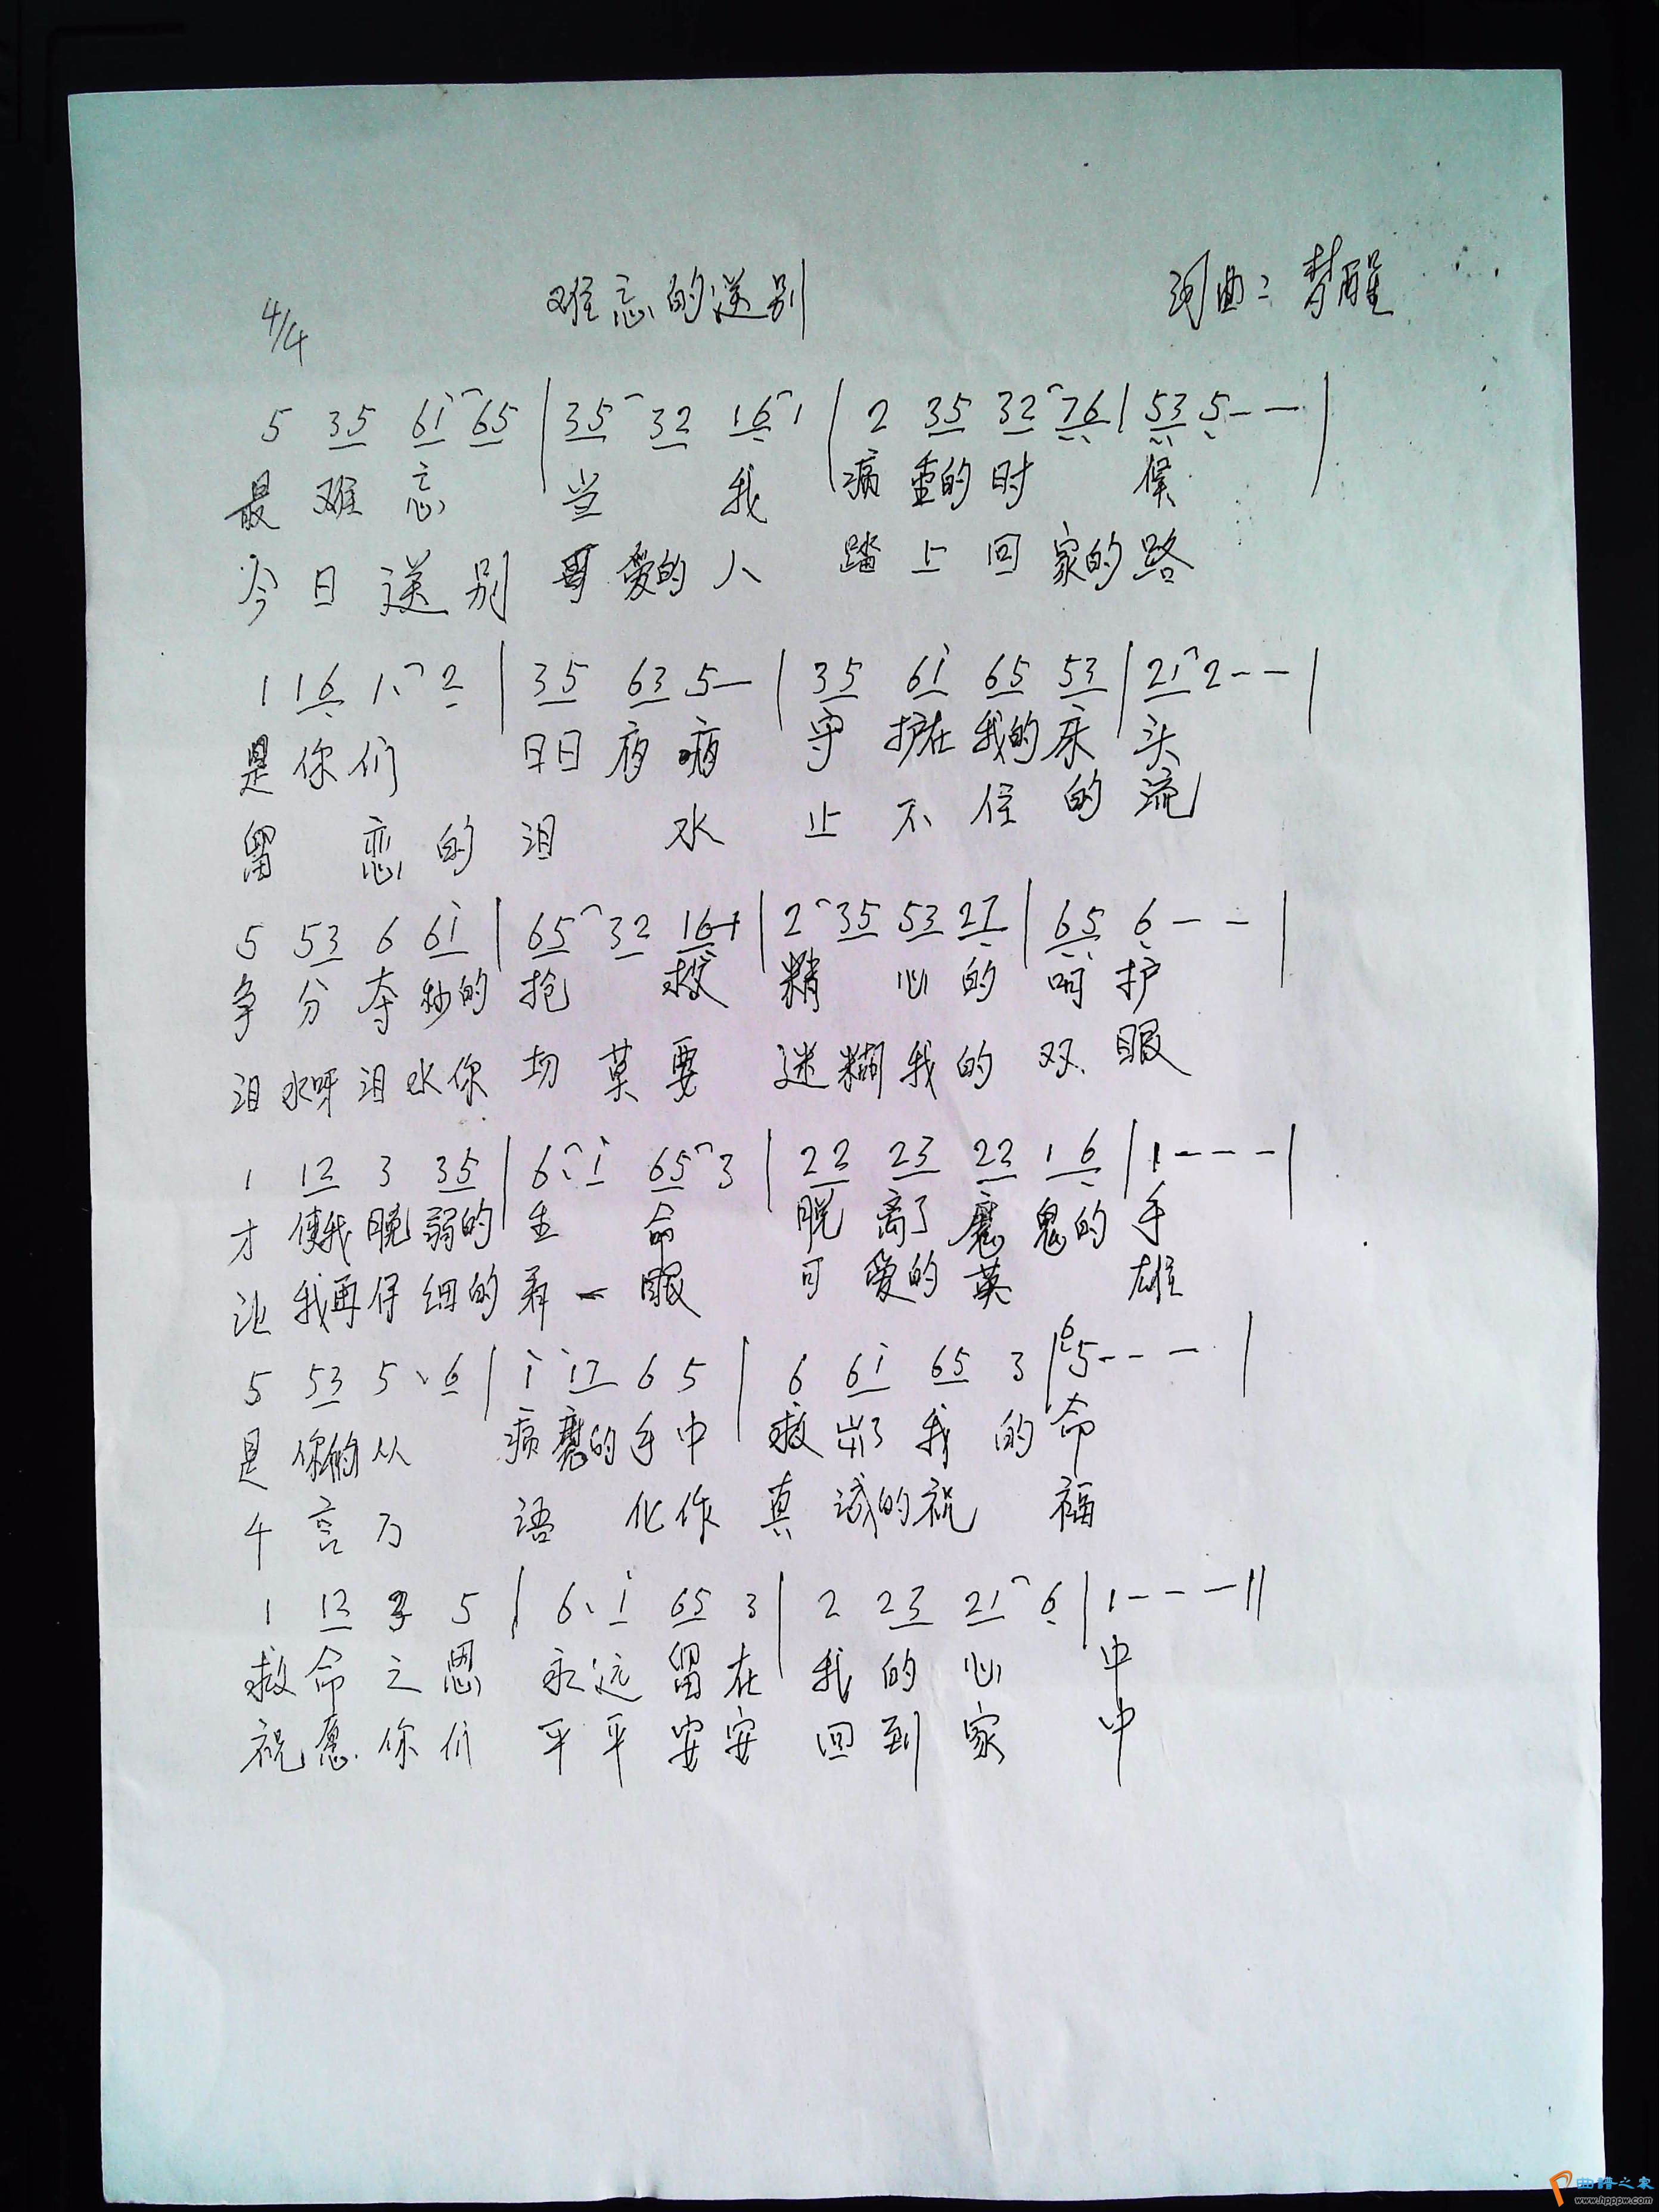 难忘的送别 词曲：梦醒
4/4
5 35 61 65 | 35 32 16 1 | 2 35 32 76 | 53 5 - - |
最难忘 当 我 病重的时 候
今日送别 可爱的人 踏上回家的路
1 16 1. 2 | 35 63 5 - | 35 61 65 53 | 21 2 - - |
是你们 日日夜夜 守护在我的床头
留恋的泪 水 止不住的流
5 53 6 61 | 65 32 16 1 | 2 35 53 27 | 65 6 - - |
争分夺秒的抢 救 精心的呵护
泪水呀泪水你切莫要 迷糊我的双眼
1 12 3 35 | 6. 1 65 3 | 22 23 22 1 6 | 1 - - - |
才使我脆弱的生 命 脱离了魔鬼的手
让我再仔细的看一眼 可爱的英 雄
5 53 5. 6 | 1 12 6 5 | 6 61 65 3 | 6 5 - - - |
是你们从 病魔的手中 救出了我的命
千言万 语 化作真诚的祝 福
1 12 3 5 | 6. 1 65 3 | 2 23 21 6 | 1 - - - ||
救命之恩 永远留在 我的心 中
祝愿你们 平平安安 回到家 中
曲谱之家
www.hppw.com